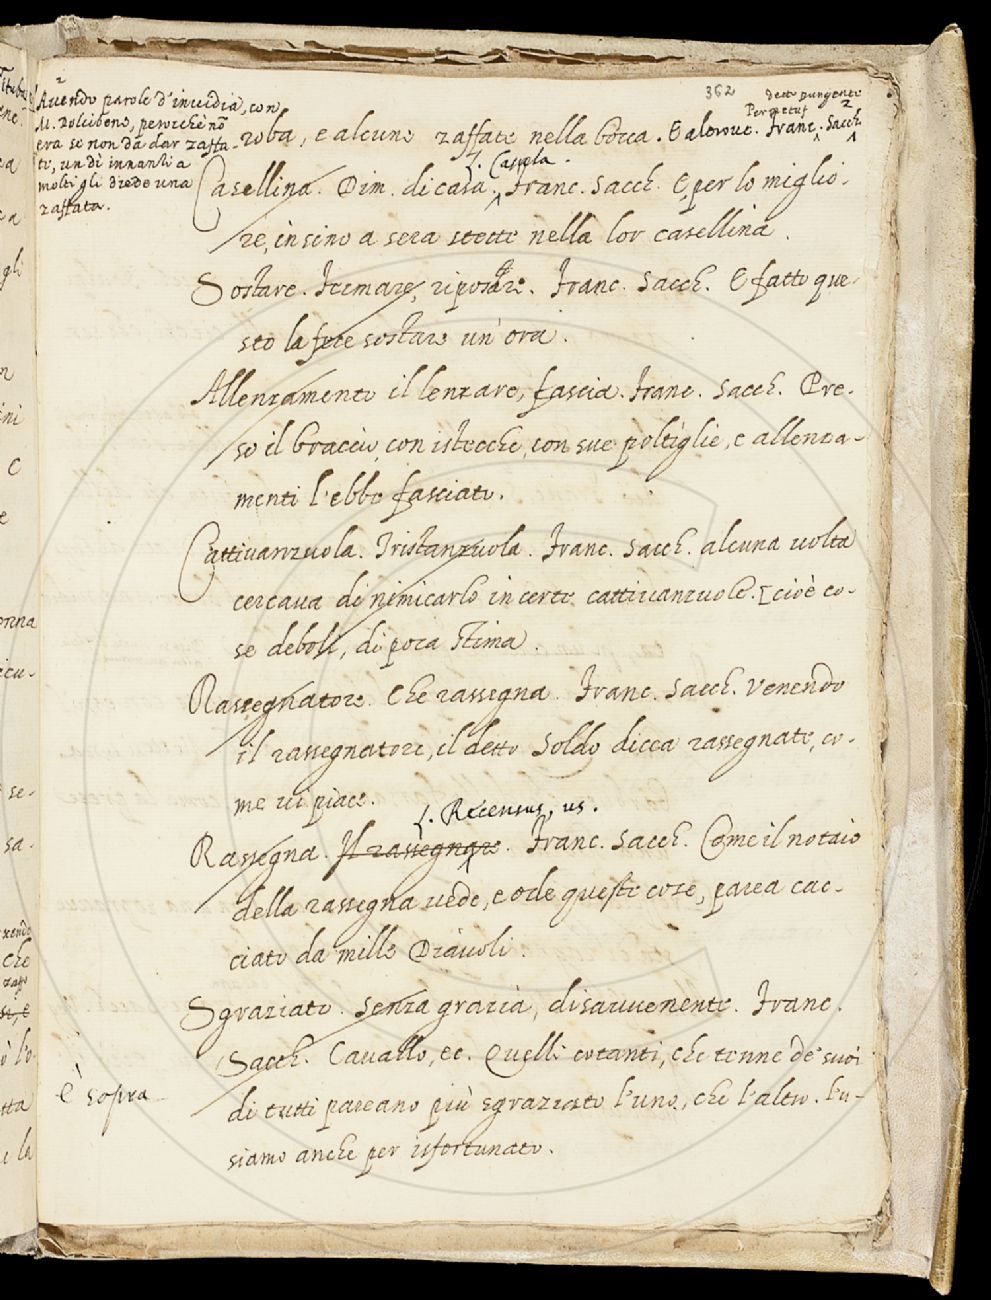 362
detto pungente
Per metaf
roba, e alcune zaffate nella bocca. E altrove. Franc. Sacch.
2
Avendo parole d'invidia, con
M. Dolcibene, perocchè nõ
era se non da dar zaffa-
te, un dì innanzi a
molti gli diede una
zaffata.
L. Casula.
Casellina. Dim. di casa. Franc. Sacch. E per lo miglio-
re, insino a sera stette nella lor casellina.
Sostare. Fermare, riposare. Franc. Sacch. E fatto que-
sto la fece sostare un'ora.
Allenzamento il lenzare, fascia. Franc. Sacch. Pre-
so il braccio, con istecche, con sue poltiglie, e allenza-
menti l'ebbe fasciato.
Cattivanzuola. Tristanzuola. Franc. Sacch. alcuna volta
cercava di nimicarlo in certe cattivanzuole. [cioè co-
se deboli, di poca stima.
Rassegnatore. Che rassegna. Franc. Sacch. Venendo
il rassegnatore, il detto Soldo dicea rassegnate, co-
me vi piace.
L. Recensus, us.
Rassegna. Il rassegnare. Franc. Sacch. Come il notaio
della rassegna vede, e ode queste cose, parea cac-
ciato da mille Diavoli.
Sgraziato. Senza grazia, disavvenente. Franc.
Sacch. Cavallo, ec. Quelli cotanti, che tenne de' suoi
È sopra
di tutti pareano più sgraziato l'uno, che l'altro. L'u-
siamo anche per isfortunato.